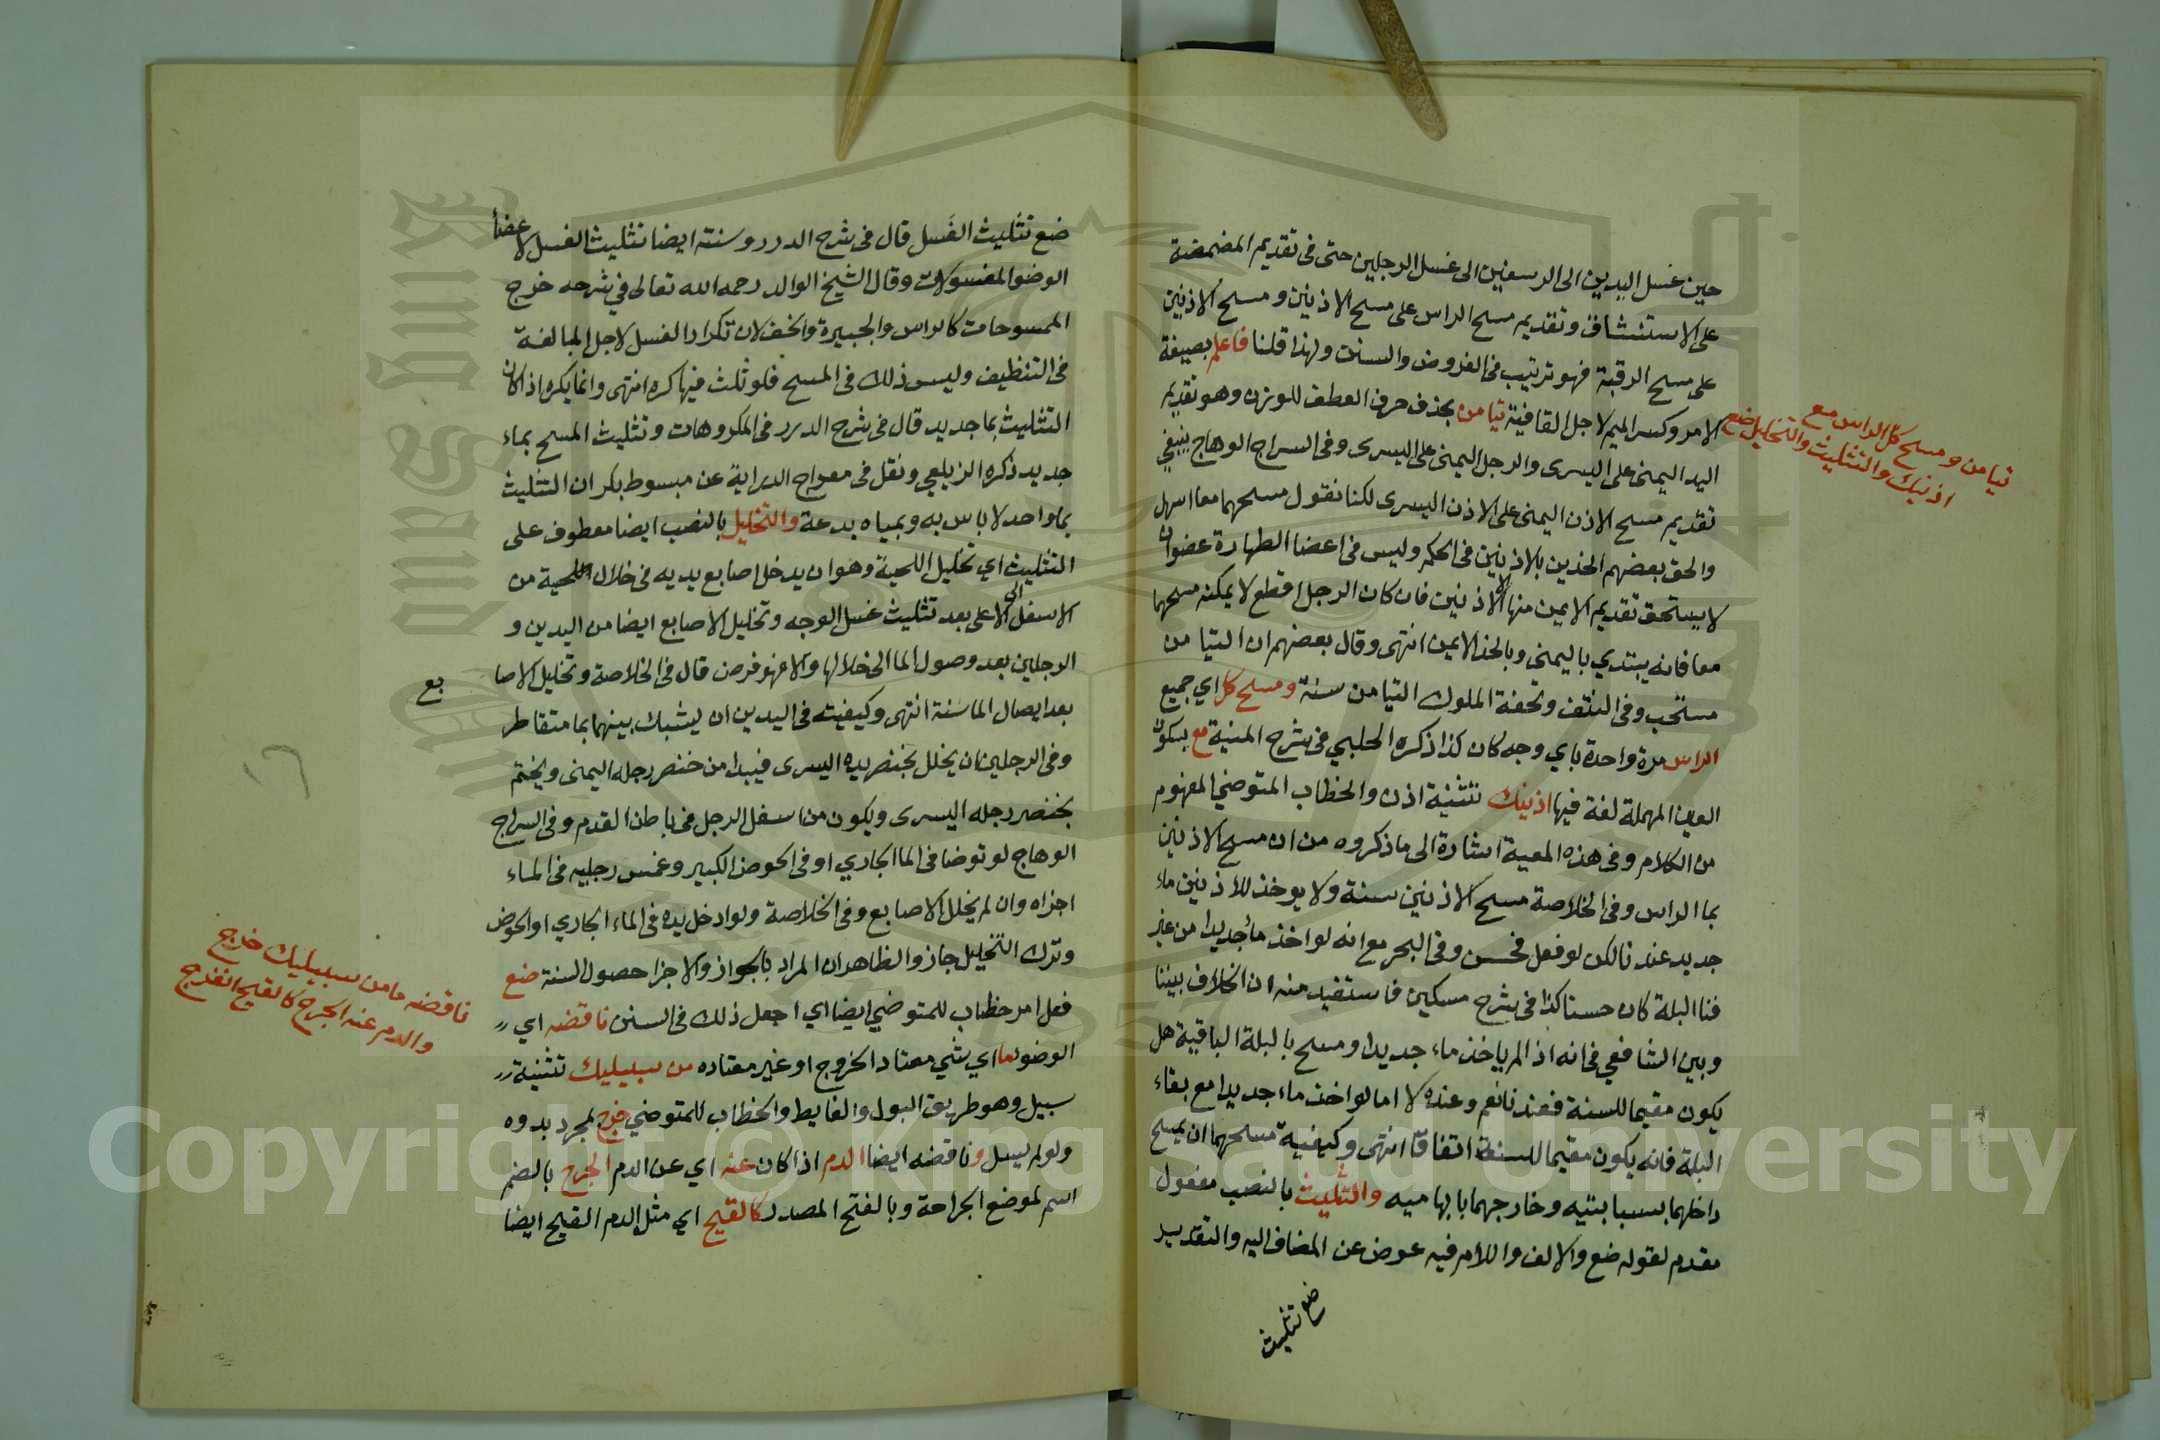 حين غسل اليدين الى الرسغين الى غسل الرجلين حتى فى تقديم المضمضة
على الاستنشاق وتقديم مسح الراس على مسح الاذنين ومسح الاذنين
على مسح الرقبة فهو ترتيب فى الفروض والسنن ولهذا قلنا فاعلم بصيغة
الامر وكسر الميم لاجل القافية تيامن بحذف حرف العطف للوزن وهو تقديم
اليد اليمنى على اليسرى والرجل اليمنى على اليسرى وفى السراج الوهاج ينبغي
تقديم مسح الاذن اليمنى على الاذن اليسرى لكنا نقول مسحهما معا اسهل
والحق بعضهم الخدين بالاذنين فى الحكم وليس فى اعضا الطهارة عضوان
لا يستحق تقديم الايمن منها الا الاذنين فان كان الرجل اقطع لا يمكنه مسحهما
معا فانه يبتدي باليمنى وبالخد الايمن انتهى وقال بعضهم ان التيامن
مستحب وفى النتف وتحفة الملوك التيامن سنة ومسح كل اي جميع
الراس مرة واحدة باي وجه كان كذا ذكره الحلبي فى شرح المنية مع بسكون
العين المهملة لغة فيها اذنيك تثنية اذن والخطاب المتوضي المفهوم
من الكلام وفى هذه المعية اشارة الى ما ذكروه من ان مسح الاذنين
بما الراس وفى الخلاصة مسح الاذنين سنة ولا يوخذ للاذنين ماء
جديد عندنا لكن لو فعل فحسن وفى البحر مع انه لو اخذ ماء جديدا من غير
فنا البلة كان حسنا كذا فى شرح مسكين فاستفيد منه ان الخلاف بيننا
وبين الشافعي فى انه اذا لم ياخذ ماء جديدا ومسح بالبلة الباقية هل
يكون مقيما للسنة فعندنا نعم وعنده لا اما لو اخذ ماء جديدا مع بقاء
البلة فانه يكون مقيما للسنة اتفاقا انتهى وكيفية مسحهما ان يمسح
داخلهما بسبابتيه وخارجهما بابهاميه والتثليث بالنصب مفعول
مقدم لقوله ضع والالف واللام فيه عوض عن المضاف اليه والتقدير
ضع تثليث
تيامن ومسح كل الراس مع
اذنيك والتثليث والتخليل ضع
ضع تثليث الغسل قال فى شرح الدرر وسنته ايضا تثليث الغسل لاعضا
الوضو المغسولات وقال الشيخ الوالد رحمه الله تعالى في شرحه خرج
الممسوحات كالراس والجبيرة والخف لان تكرار الغسل لاجل المبالغة
فى التنظيف وليس ذلك فى المسح فلو ثلث فيها كره انتهى وانما يكره اذا كان
التثليث بما جديد قال فى شرح الدرر فى المكروهات وتثليث المسح بماء
جديد ذكره الزيلعي ونقل فى معراج الدراية عن مبسوط بكر ان التثليث
بماء واحد لا باس به وبمياه بدعة والتخليل بالنصب ايضا معطوف على
التثليث اي تخليل اللحية وهو ان يدخل اصابع يديه فى خلال اللحية من
الاسفل الى الاعلى بعد تثليث غسل الوجه وتخليل الاصابع ايضا من اليدين و
الرجلين بعد وصول الما الى خلالها والا فهو فرض قال فى الخلاصة وتخليل الاصا
بع
بعد ايصال الما سنة انتهى وكيفيته فى اليدين ان يشبك بينهما بما متقاطر
وفى الرجلين ان يخلل بخنصر يده اليسرى فيبدا من خنصر رجله اليمنى ويختم
بخنصر رجله اليسرى ويكون من اسفل الرجل فى باطن القدم وفى السراج
الوهاج لو توضا فى الما الجاري او فى الحوض الكبير وغمس رجليه فى الماء
اجزاه وان لم يخلل الاصابع وفى الخلاصة ولو ادخل يده فى الماء الجاري او الحوض
وترك التخليل جاز والظاهر ان المراد بالجواز والاجزا حصول السنة ضع
فعل امر خطاب للمتوضي ايضا اي اجعل ذلك فى السنن ناقضه اي
الوضو ما اي شي معتاد الخروج او غير معتاده من سبيليك تثنية
سبيل وهو طريق البول والغايط والخطاب للمتوضي خرج لمجرد بدوه
ولو لم يسل وناقضه ايضا الدم اذا كان عنه اي عن الدم الجرح بالضم
اسم لموضع الجراحة وبالفتح المصدر كالقيح اي مثل الدم القيح ايضا
ناقضه ما من سبيليك خرج
والدم عنه الجرح كالقيح انفرج
Copyright © King Saud University
King Saud University
1957